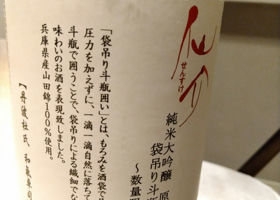 仙介
せんすけ
純米大吟醸
袋吊り斗瓶
～数量限
「袋吊り斗瓶囲い」とは、もろみを酒袋で
圧力を加えずに、一滴一滴自然に落ちて
斗瓶で囲うことで、袋吊りによる繊細でな
味わいのお酒を表現致しました。
兵庫県産山田錦100％使用。
【丹波杜氏、和氣卓司